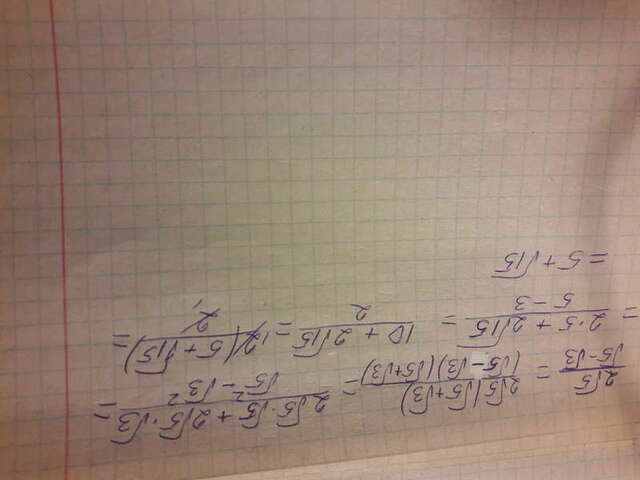 2√5/(√5-√3) = 2√5(√5+√3)/((√5-√3)(√5+√3)) = (2√5·√5+2√5·√3)/(√5²-√3²) =
= (2·5+2√15)/(5-3) = (10+2√15)/2 = 2(5+√15)/2 =
= 5+√15